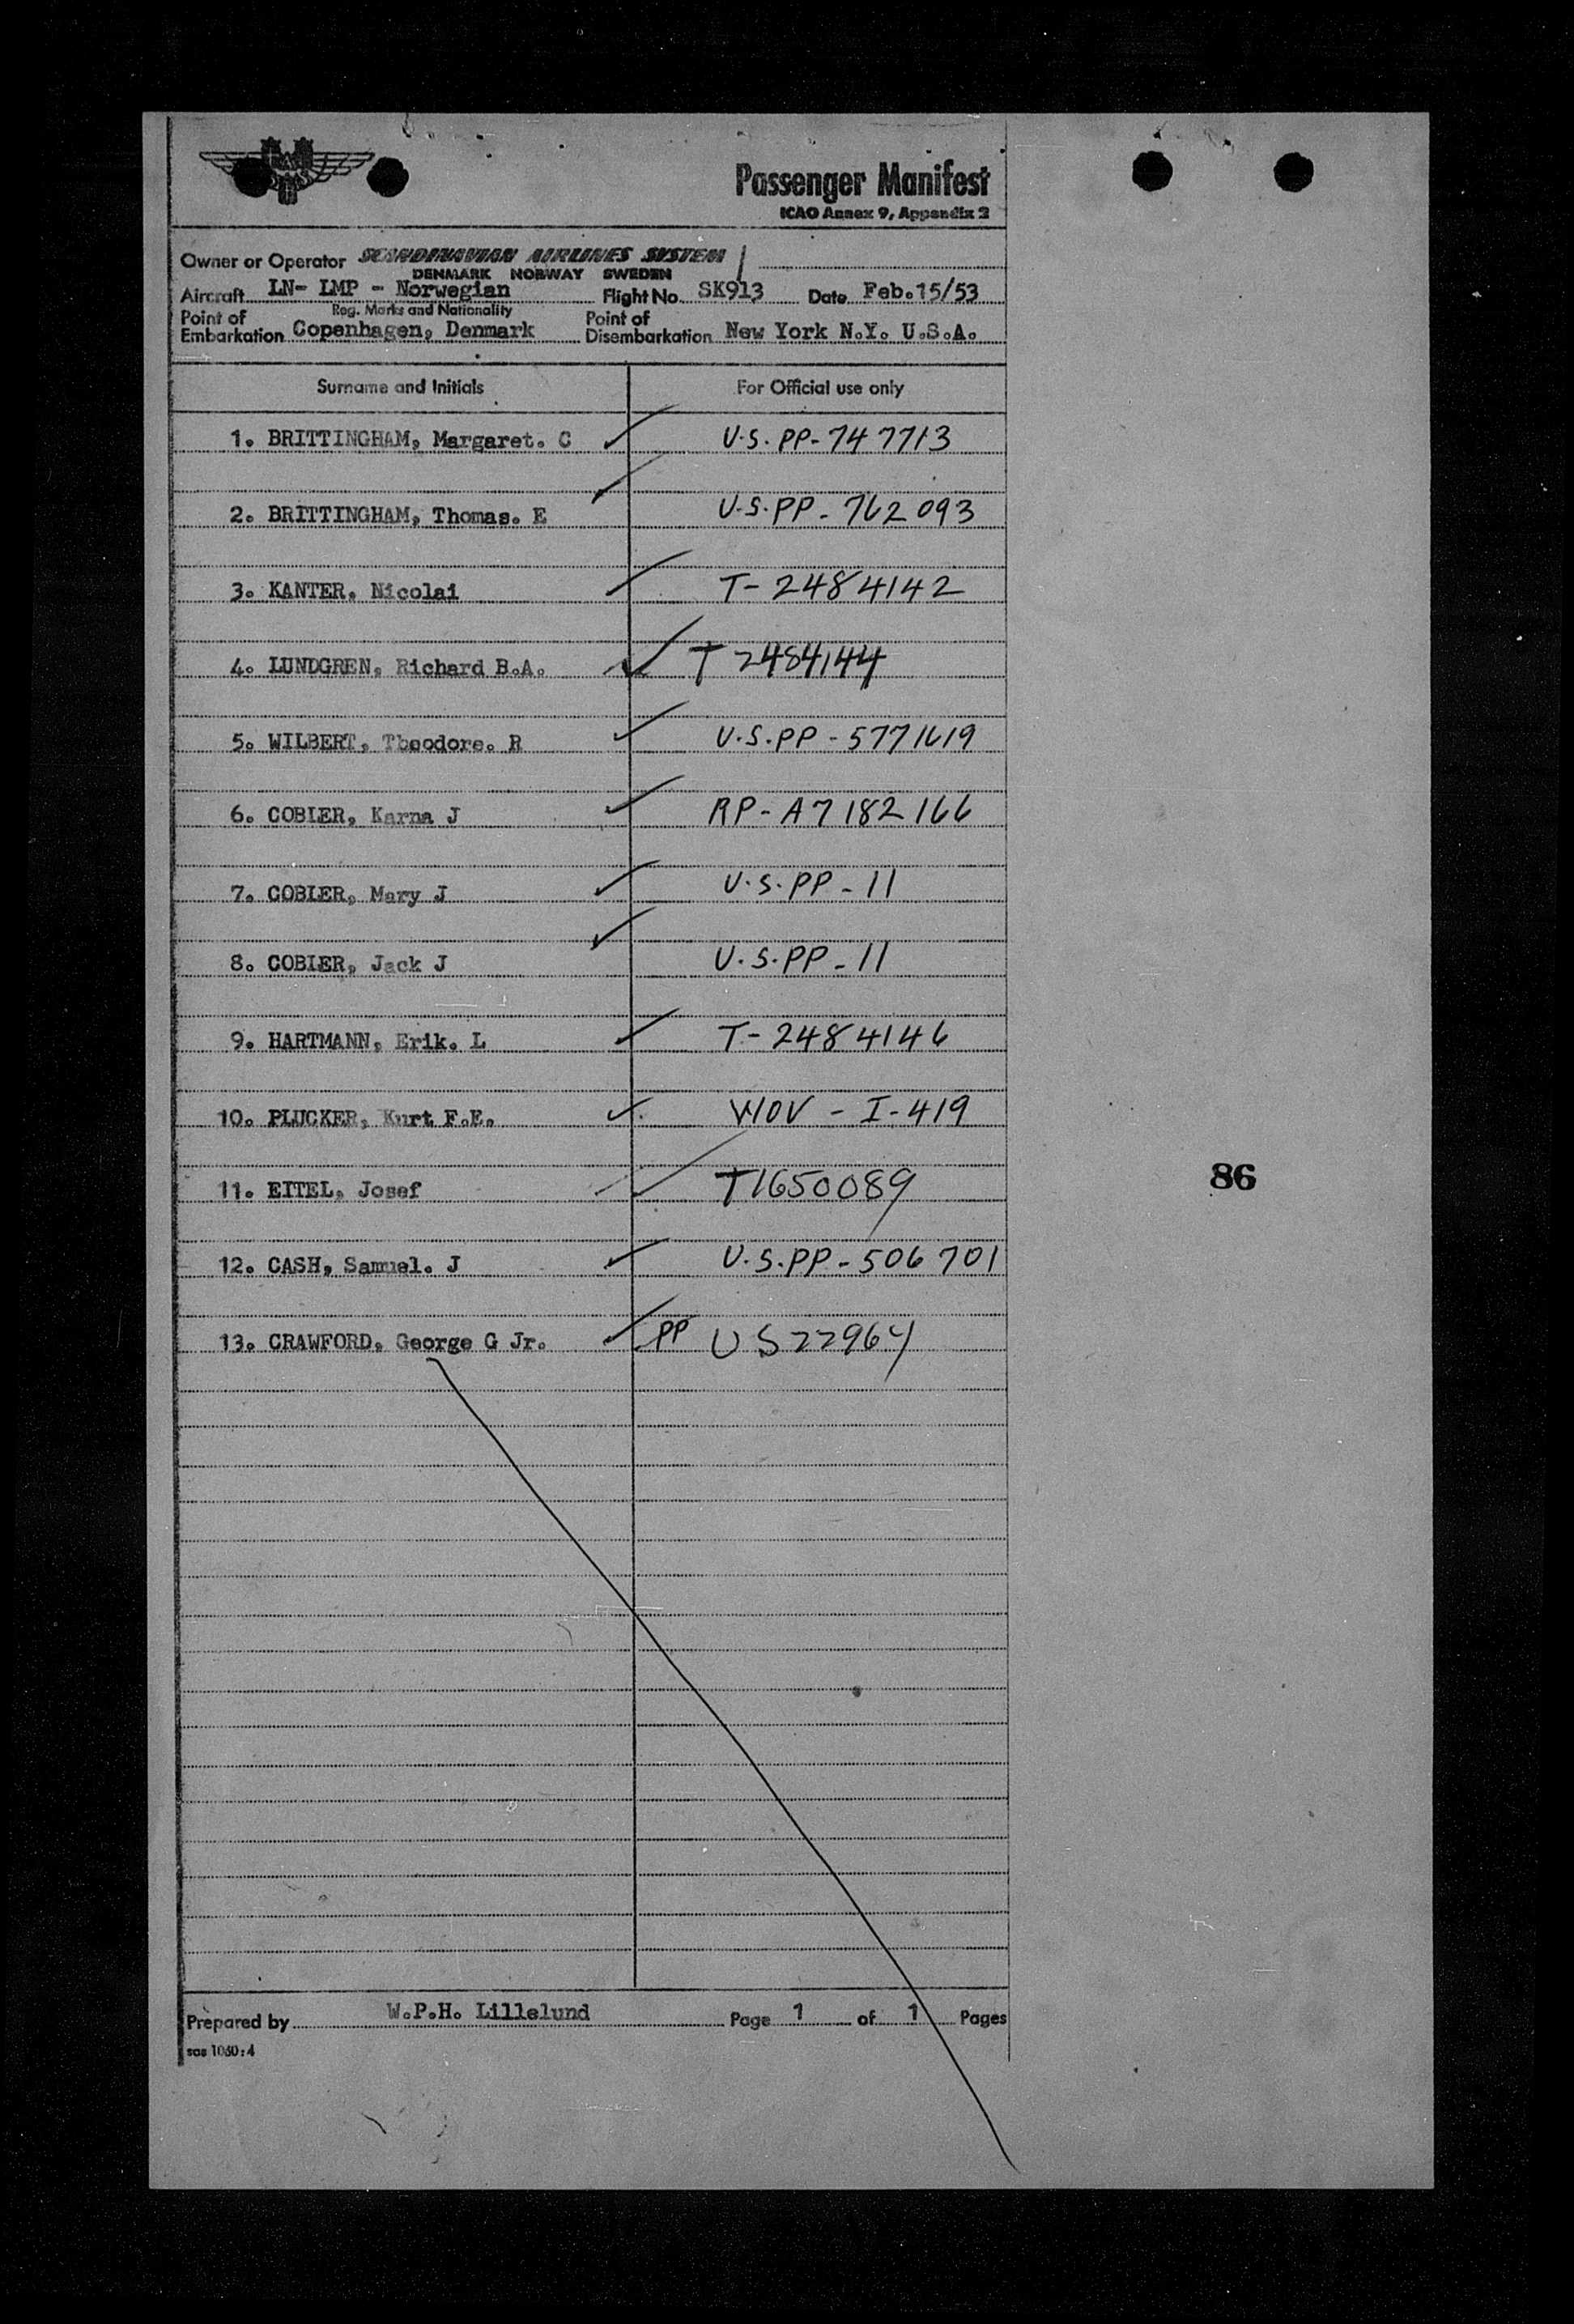 Passenger Manifest
ICAO Annex 9, Appendix 2
Owner or Operator SCANDINAVIAN AIRLINES SYSTEM
DENMARK NORWAY SWEDEN
Aircraft LN- LMP - Norwegian Flight No. SK913 Date Feb.15/53
Reg. Marks and Nationality
Point of Embarkation Copenhagen, Denmark Point of Disembarkation New York N.Y. U.S.A.
Surname and Initials For Official use only
1. BRITTINGHAM, Margaret. C U.S. PP-747713
2. BRITTINGHAM, Thomas. E U.S.PP-762093
3. KANTER, Nicolai T-2484142
4. LUNDGREN, Richard B.A. T 2484144
5. WILBERT, Theodore. R U.S.PP-5771619
6. COBLER, Karna J RP-A7182166
7. COBLER, Mary J U.S.PP-11
8. COBLER, Jack J U.S.PP-11
9. HARTMANN, Erik. L T-2484146
10. PLUCKER, Kurt F.E. WOV - I-419
11. EITEL, Josef T1650089
12. CASH, Samuel. J U.S.PP-506701
13. CRAWFORD, George G Jr. PP US22964
86
Prepared by W.P.H. Lillelund Page 1 of 1 Pages
sas 1060:4